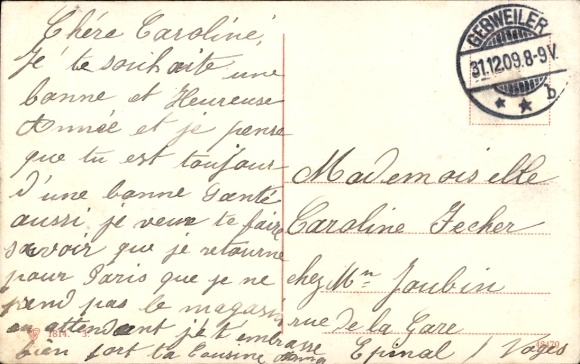 Chére Caroline,
Je te souhaite une
bonne et Heureuse
Année et je pense
que tu est toujour
d'une bonne Santé
aussi, je veux te faire
savoir que je retourne
pour Paris que je ne
prend pas le magasin
en attendent je t'embrasse
bien fort ta Cousine Anna
GEBWEILER
31.12.09.8-9V.
* * b
Mademoiselle
Caroline Fecher
chez Mr Joubin
rue de la Gare
Epinal / Voges
1814.